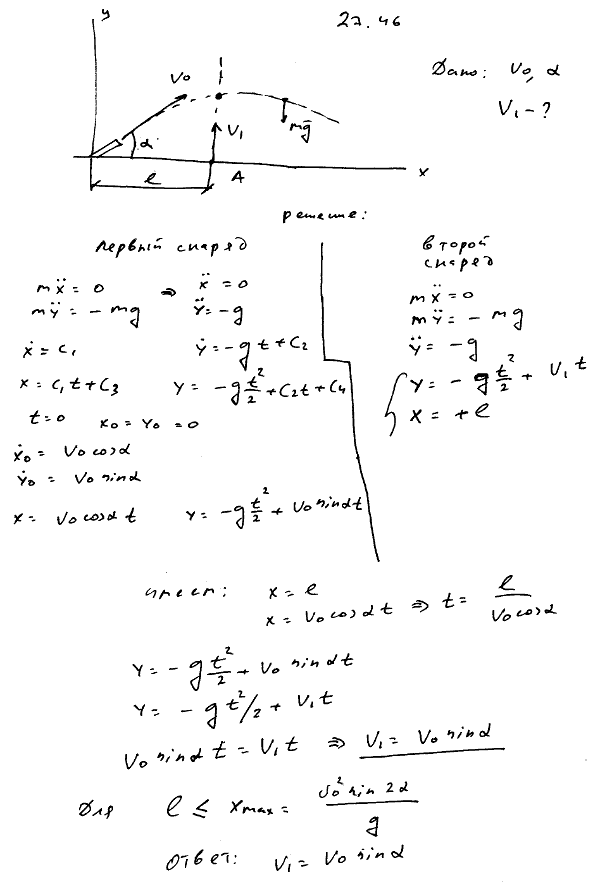 y
27.46
Дано: V₀, α
V₁ - ?
V₀
V₁
mg̅
α
x
ℓ
A
решение:
первый снаряд
mẍ = 0 ⇒ ẍ = 0
mÿ = - mg
ÿ = -g
ẋ = C₁
ẏ = -gt + C₂
x = C₁t + C₃
y = -g t²/2 + C₂t + C₄
t=0 x₀ = y₀ = 0
ẋ₀ = V₀ cos α
ẏ₀ = V₀ sin α
x = V₀ cos α t
y = -g t²/2 + V₀ sin α t
второй
снаряд
mẍ = 0
mÿ = - mg
ÿ = -g
y = - g t²/2 + V₁ t
x = + ℓ
имеем: x = ℓ
x = V₀ cos α t ⇒ t = ℓ / V₀ cos α
y = - g t²/2 + V₀ sin α t
y = - g t²/2 + V₁ t
V₀ sin α t = V₁ t ⇒ V₁ = V₀ sin α
Для ℓ ≤ x max = V₀² sin 2α / g
Ответ: V₁ = V₀ sin α